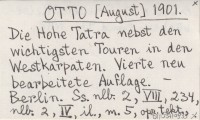 OTTO [August] 1901.
Die Hohe Tatra nebst den
wichtigsten Touren in den
Westkarpaten. Vierte neu
bearbeitete Auflage. –
Berlin. Ss. nlb. 2, VIII, 234,
nlb. 2, IV, il., m. 5,